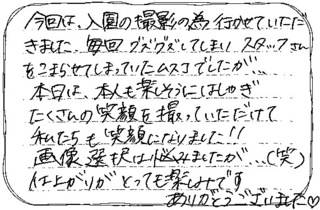 今回は、入園の撮影の為 行かせていただ
きました。毎回 グズグズしてしまい スタッフさん
をこまらせてしまっていたムスコでしたが、
本日は、本人も楽しそうにはしゃぎ
たくさんの笑顔を撮っていただけて
私たちも笑顔になりました!!
画像選択は悩みましたが…(笑)
仕上がりがとっても楽しみです
ありがとうございました♡